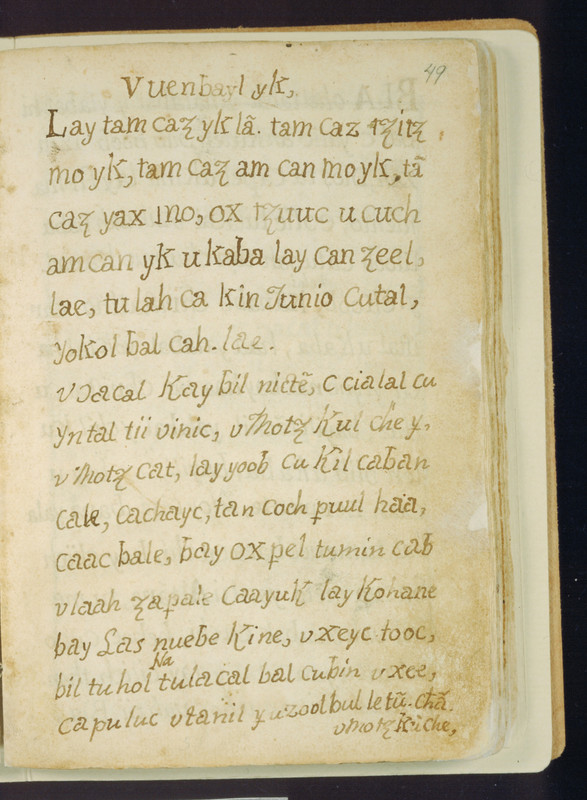 49
V uenbayl yk,
Lay tam caꜩ yk lã. tam caz tꜩitꜩ
mo yk, tam caꜩ am can mo yk, tã
caꜩ yax mo, ox tꜩuuc u cuch
am can yk u kaba lay can ꜩeel,
lae, tu lah ca kin Junio cutal,
yokol bal cah. lae.
vɔacal kay bil nictẽ, c cialal cu
yntal tii vinic, v motꜩ kul che y,
v motꜩ cat, lay yoob cu kil caban
cale, cachayc, tan coch puul haa,
caac bale, bay ox pel tumin cab
v laah ꜩapale caayuk lay kohane
bay Las nuebe kine, v xeyc tooc,
Na
bil tu hol tulacal bal cubin v xee,
capuluc vtanil y uzool bul le tũ. chã.
v motꜩ kuche,